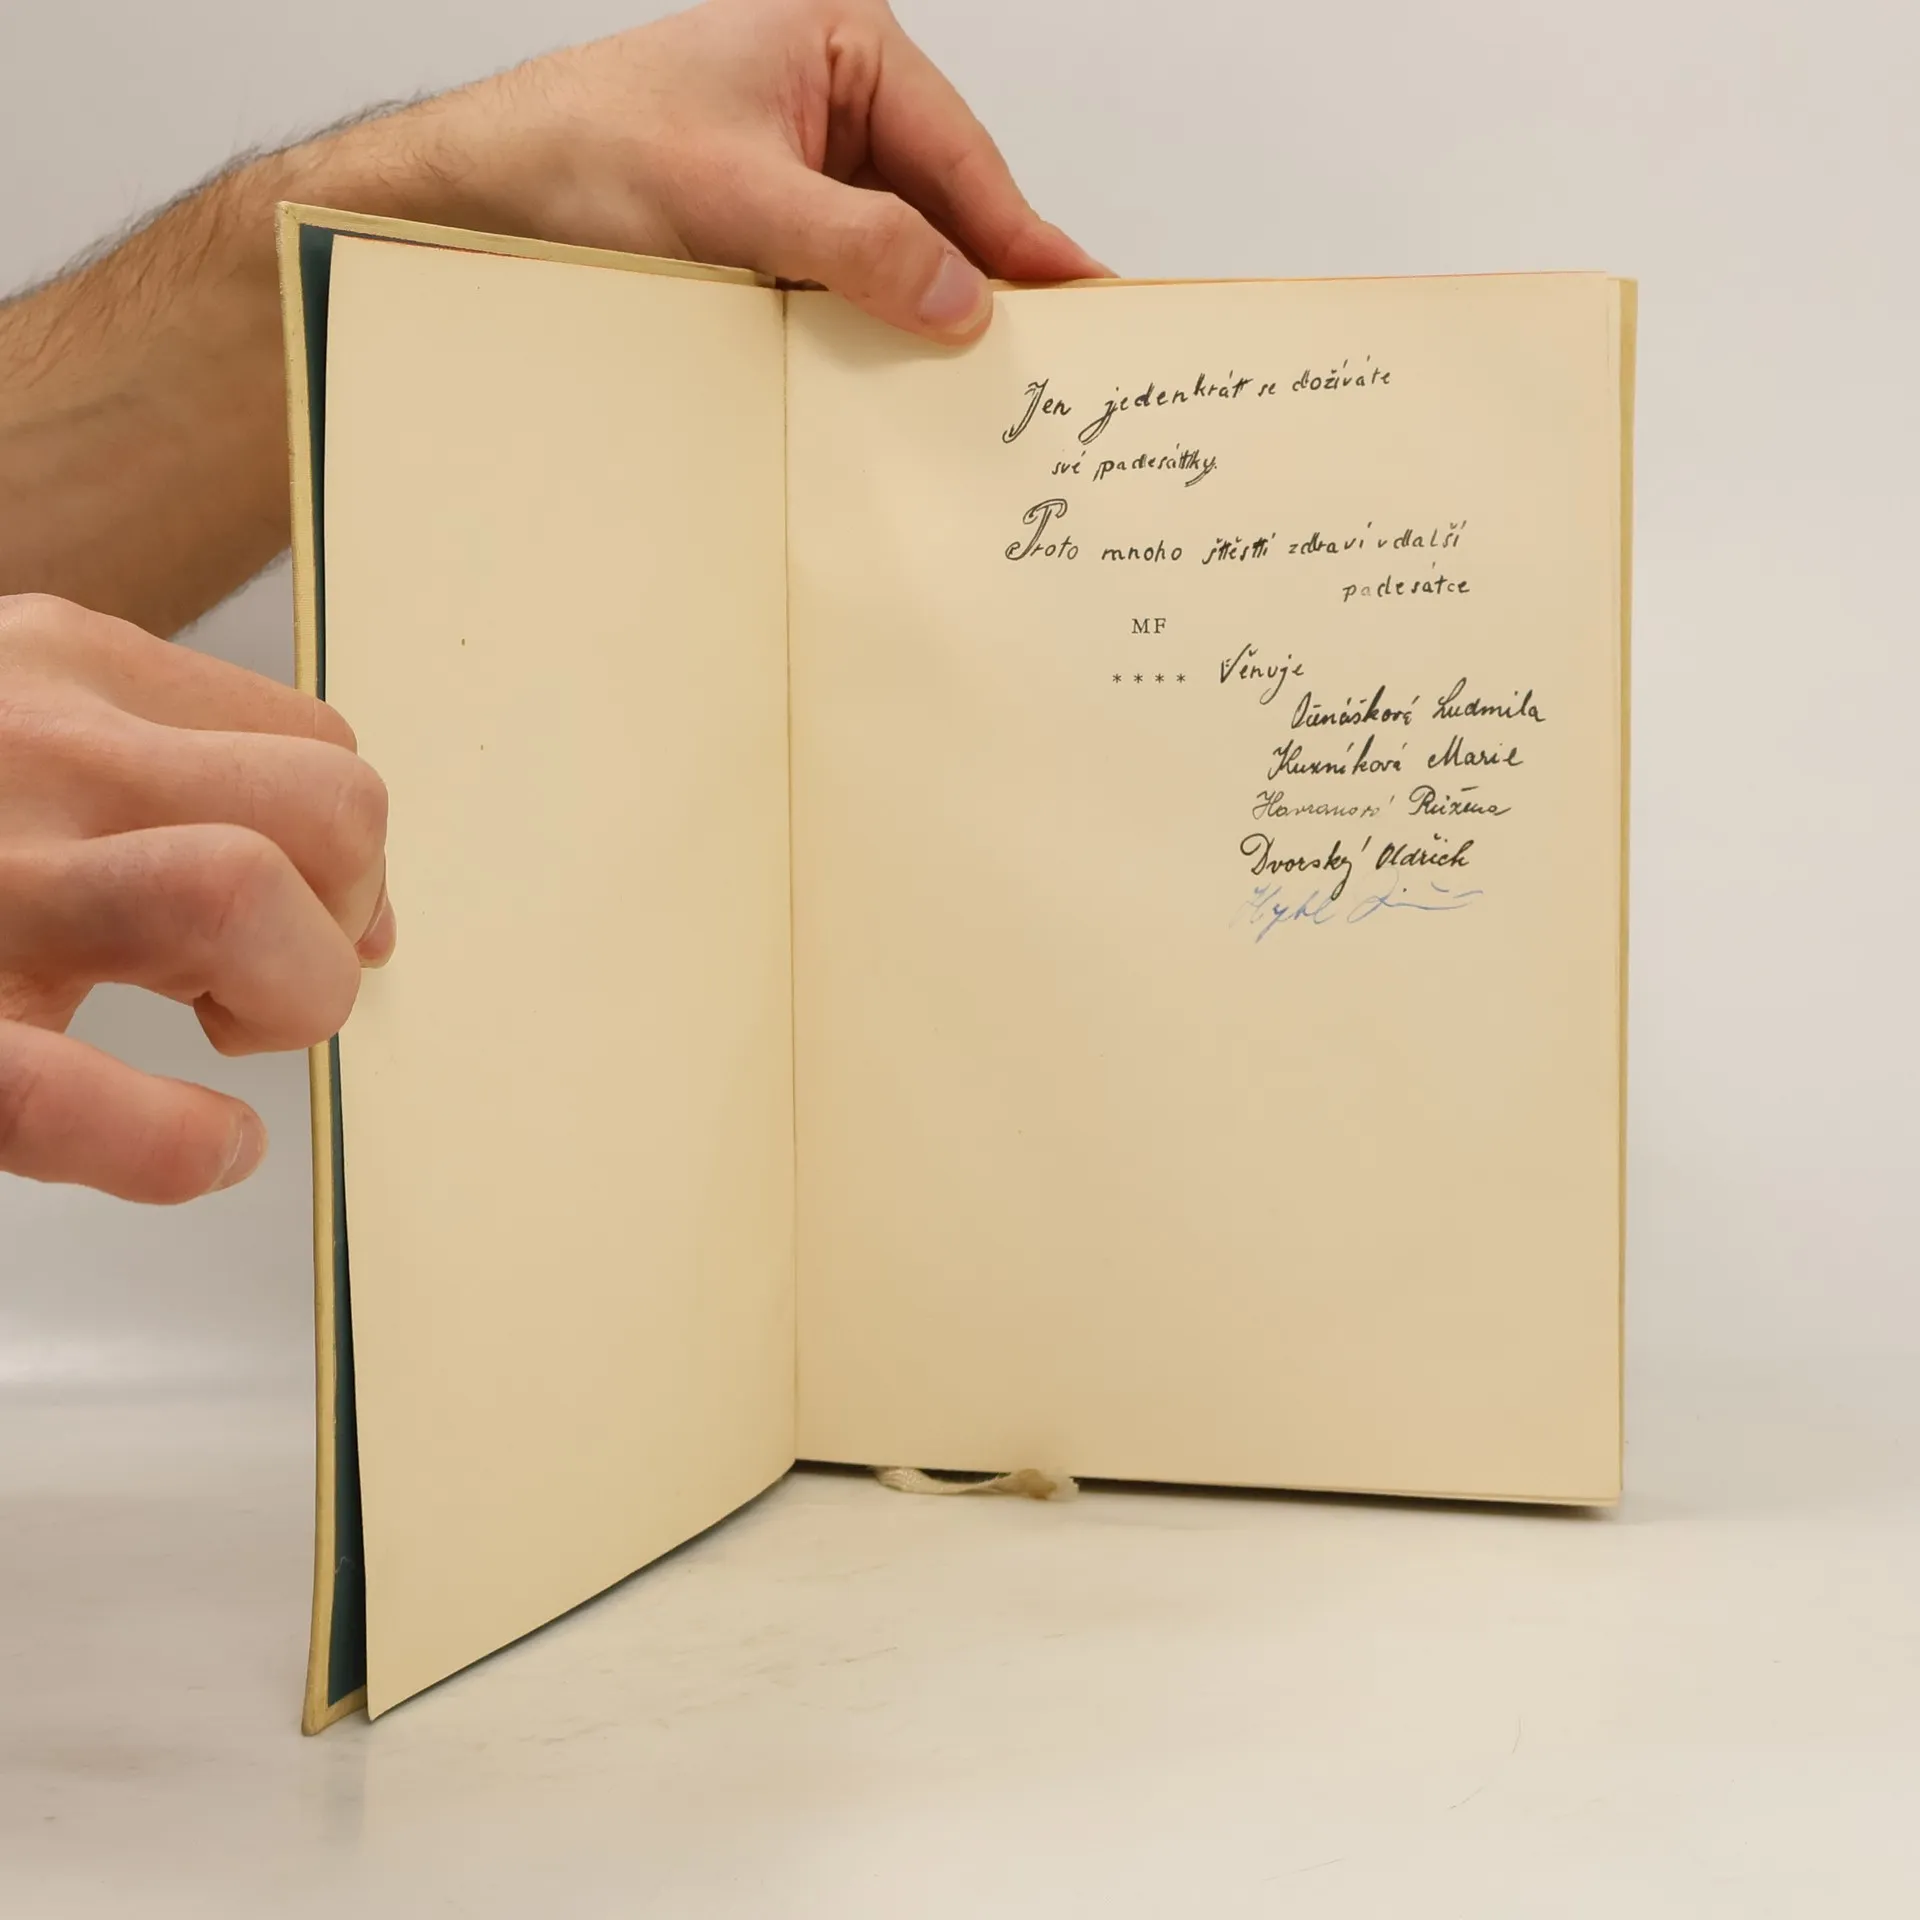 Jen jedenkrát se dožíváte
své padesátky.
Proto mnoho štěstí zdraví v další
padesátce
MF
**** Věnuje
Ludmila
Kuzníková Marie
Havranová Růžena
Dvorský Oldřich
Hybl Jiří